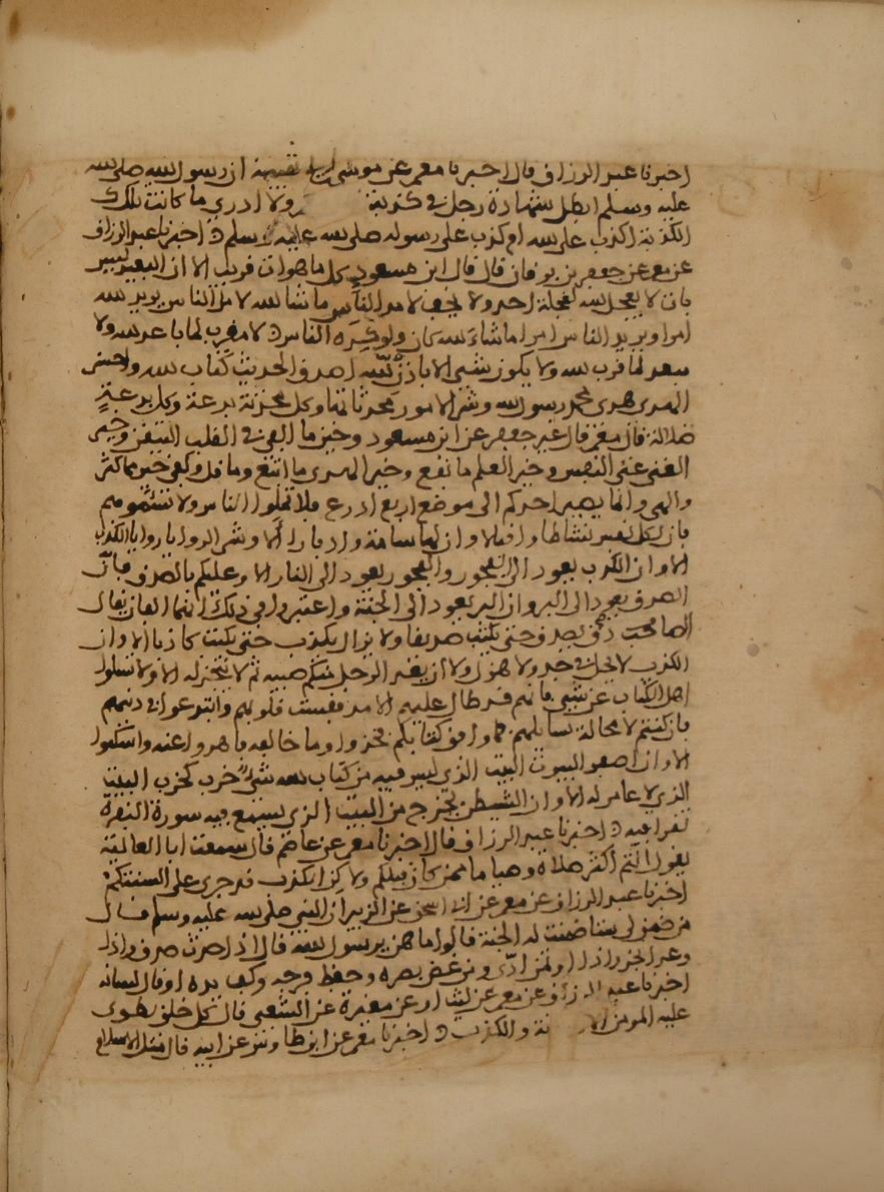 اخبرنا عبد الرزاق قال اخبرنا معمر عن موسى بن ابي شيبة ان رسول الله صلى الله
عليه وسلم ابطل شهادة رجل في كذبة ولا ادري ما كانت تلك
الكذبة اكذب على الله ام كذب على رسوله صلى الله عليه وسلم اخبرنا عبد الرزاق
عن معمر عن جعفر بن برقان قال قال ابن مسعود كل ما هو ات قريب الا ان البعيد ليس
بات لا يعجل الله لعجلة احد ولا يخف لامر الناس ما شا الله لا ما الناس يريد الله
امرا ويريد الناس امرا ما شاء الله كان ولو كره الناس لا مقرب لما باعد الله ولا
مبعد لما قرب الله ولا يكون شي الا باذن الله اصدق الحديث كتاب الله واحسن
الهدى هدى محمد رسول الله وشر الامور محدثاتها وكل محدثة بدعة وكل بدعة
ضلالة قال معمر قال غير جعفر عن ابن مسعود وخير ما القي في القلب اليقين وخير
الغنى غنى النفس وخير العلم ما نفع وخير الهدى ما اتبع وما قل وكفى خير مما كثر
والهى وانما يصير احدكم الى موضع اربع اذرع فلا تملوا الناس ولا تسئموهم
فان لكل نفس نشاطا واقبالا وان لها سامة وادبارا الا وشر الروايا روايا الكذب
الا وان الكذب يعود الى الفجور والفجور يعود الى النار الا وعليكم بالصدق فان
الصدق يعود الى البر وان البر يعود الى الجنة واعتبروا في ذلك ايهما الفان يقال
الصادق يصدق حتى يكتب صديقا ولا يزال يكذب حتى يكتب كاذبا الا وان
الكذب لا يحل في جد ولا هزل ولا ان يعد الرجل منكم صبيه ثم لا ينجز له الا ولا تسلوا
اهل الكتاب عن شي فانهم قد طال عليهم الامد فقست قلوبهم وابتدعوا في دينهم
فان كنتم لا محالة تسايلهم فما وافق كتابكم فخذوا وما خالفه فاهدوا عنه واسكتوا
الا وان اصفر البيوت البيت الذي ليس فيه من كتاب الله شي خرب كخرب البيت
الذي لا عامر له الا وان الشيطن يخرج من البيت الذي يسمع فيه سورة البقرة
تقرا فيه اخبرنا عبد الرزاق قال اخبرنا معمر عن عاصم قال سمعت ابا العالية
يقول انتم اكثر صلاة وصياما ممن كان قبلكم ولاكن الكذب قد جرى على السنتكم
اخبرنا عبد الرزاق عن معمر عن ابي اسحق عن الزبير ان النبي صلى الله عليه وسلم قال
من ضمن لي ستا ضمنت له الجنة قالوا ما هن يرسول الله قال اذا حدث صدق واذا
وعد انجز واذا اوتمن ادى ومن غض بصره وحفظ فرجه وكف يده او قال لسانه
اخبرنا عبد الرزاق عن معمر عن ليث او عن مغيرة عن الشعبي قال كل خلق يطوى
عليه المومن الا نة والكذب اخبرنا معمر عن ابن طاوس عن ابيه قال مثل الاسلام